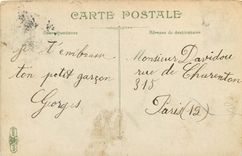 CARTE POSTALE
Correspondance
Adresse du destinataire
je t'embrasse
ton petit garçon
Georges
Monsieur Davidou
rue de Charenton
318
Paris (12)